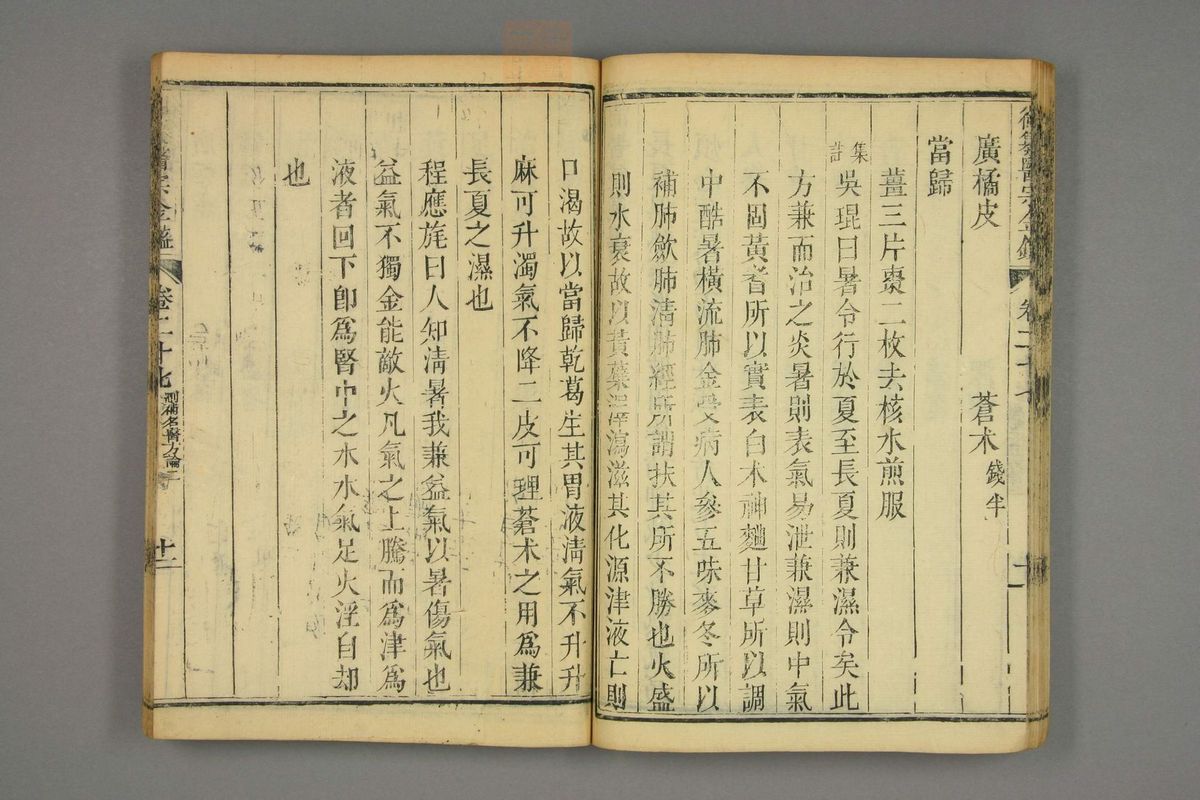 御纂醫宗金鑑 卷二十七 十一
廣橘皮 蒼朮錢半
當歸
薑三片棗二枚去核水煎服
集註吳琨曰暑令行於夏至長夏則兼濕令矣此
方兼而治之炎暑則表氣易泄兼濕則中氣
不固黃耆所以實表白朮神麯甘草所以調
中酷暑橫流肺金受病人參五味麥冬所以
補肺歛肺清肺經所謂扶其所不勝也火盛
則水衰故以黃蘗澤瀉滋其化源津液亡則
口渴故以當歸乾葛生其胃液清氣不升升
麻可升濁氣不降二皮可理蒼朮之用為兼
長夏之濕也
程應旄曰人知清暑我兼益氣以暑傷氣也
益氣不獨金能敵火凡氣之上騰而為津為
液者回下即為腎中之水水氣足火淫自却
也
醫宗金鑑 卷二十七 刪補名醫方論二 十二